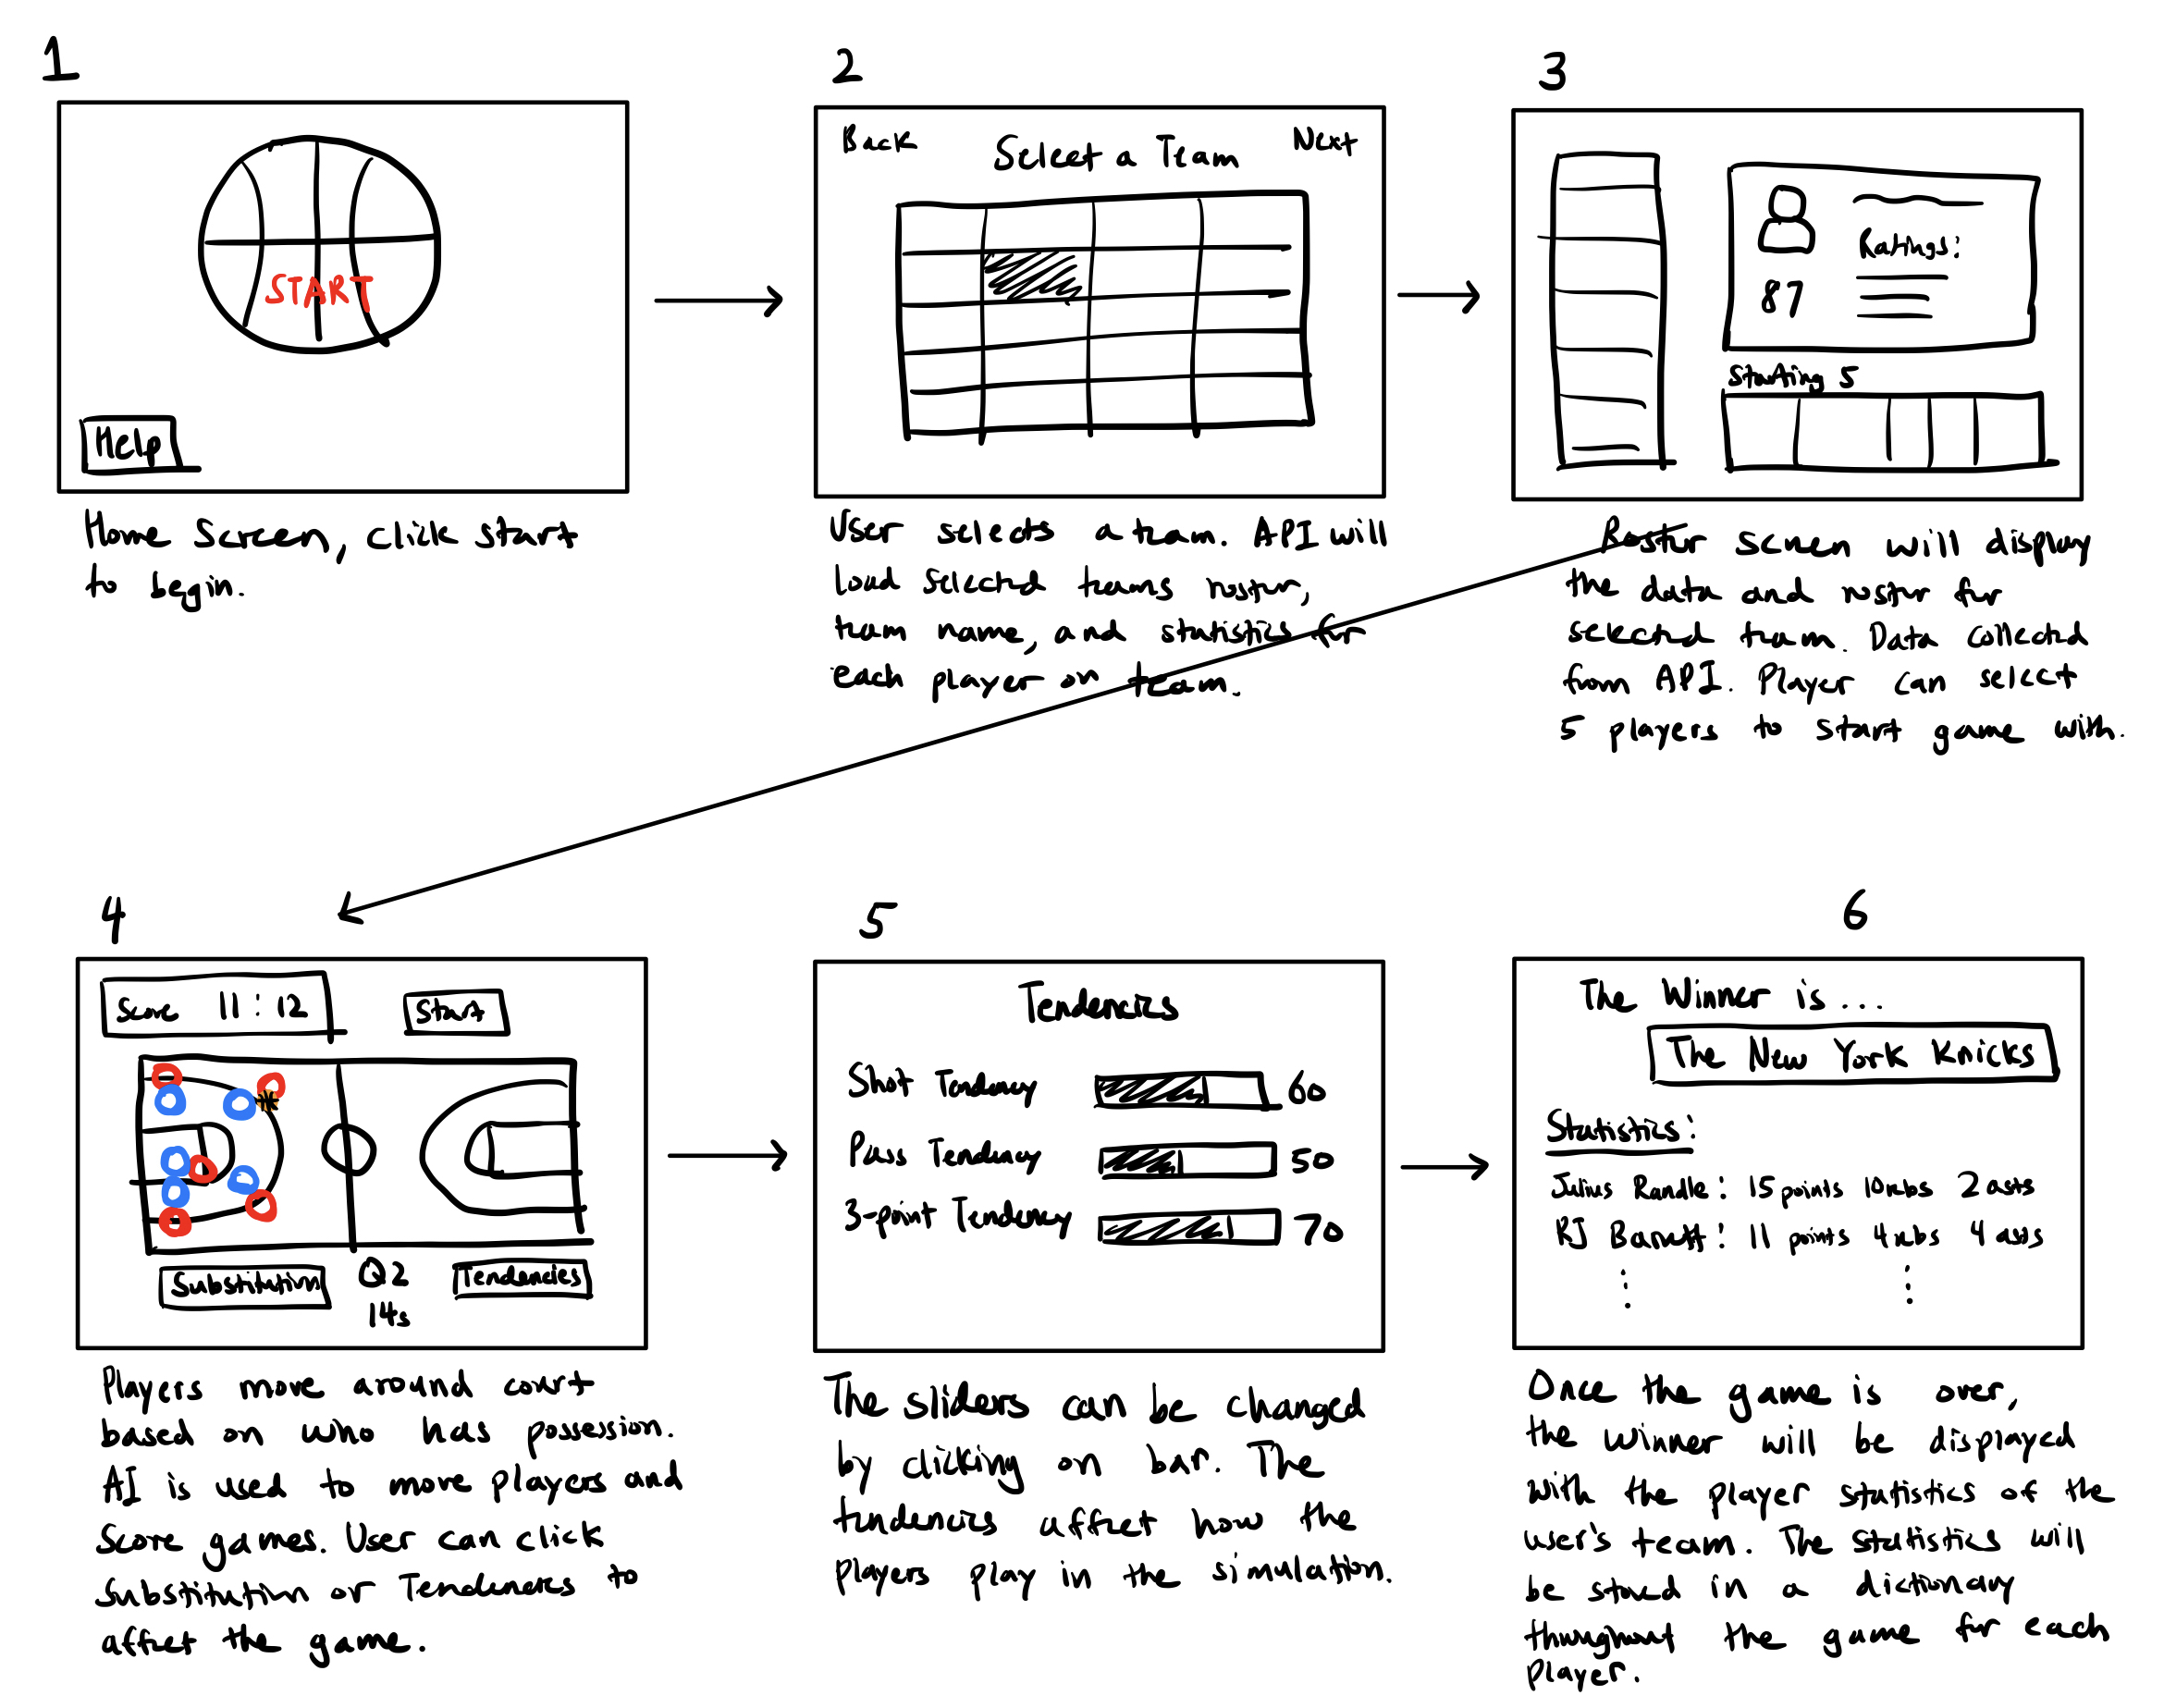 1
START
Help
Home Screen, click start
to begin.
2
Back
Select a Team
Next
User selects a team. API will
load selected teams roster,
team name, and statistics for
each player on team.
3
Ratings:
87
Starting 5
Roster screen will display
the data and roster for
selected team. Data collected
from API. Player can select
5 players to start game with.
4
Score 11:12
Start
Substitution
Q2
14s
Tendencies
Players move around court
based on who has possession.
AI is used to move players and
score games. User can click
substitution or Tendencies to
affect the game.
5
Tendencies
Shot Tendency 60
Pass Tendency 50
3-point Tendency 70
The sliders can be changed
by clicking on bar. The
tendencies affect how the
players play in the simulation.
6
The Winner is...
The New York Knicks
Statistics:
Julius Randle: 15 points 10 rebs 2 asts
RJ Barrett: 11 points 4 rebs 4 asts
Once the game is over,
the winner will be displayed
with the player statistics of the
user's team. The statistics will
be stored in a dictionary
throughout the game for each
player.